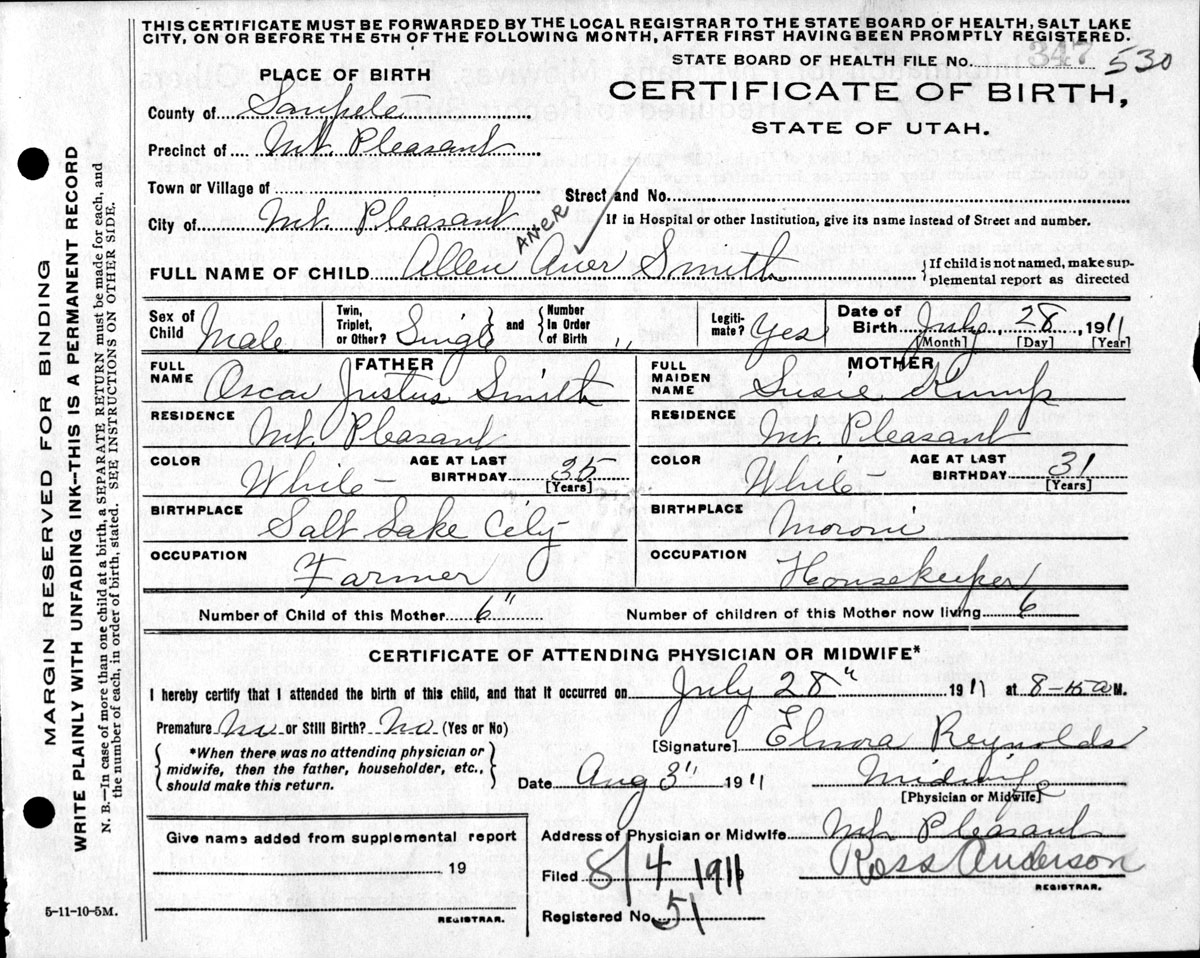 THIS CERTIFICATE MUST BE FORWARDED BY THE LOCAL REGISTRAR TO THE STATE BOARD OF HEALTH, SALT LAKE
CITY, ON OR BEFORE THE 5TH OF THE FOLLOWING MONTH, AFTER FIRST HAVING BEEN PROMPTLY REGISTERED.
STATE BOARD OF HEALTH FILE No. 347 530
PLACE OF BIRTH
CERTIFICATE OF BIRTH,
STATE OF UTAH.
County of Sanpete
Precinct of Mt. Pleasant
Town or Village of
Street and No.
City of Mt. Pleasant
If in Hospital or other Institution, give its name instead of Street and number.
ANER
FULL NAME OF CHILD Allen Aner Smith
{If child is not named, make sup-
plemental report as directed
Sex of Child Male
Twin, Triplet, or Other? Single and {Number In Order of Birth "
Legiti-mate? Yes
Date of Birth July 28, 1911
[Month] [Day] [Year]
FATHER
FULL NAME Oscar Justus Smith
RESIDENCE Mt. Pleasant
COLOR White AGE AT LAST BIRTHDAY 35 [Years]
BIRTHPLACE Salt Lake City
OCCUPATION Farmer
MOTHER
FULL MAIDEN NAME Susie Kump
RESIDENCE Mt. Pleasant
COLOR White AGE AT LAST BIRTHDAY 31 [Years]
BIRTHPLACE Moroni
OCCUPATION Housekeeper
Number of Child of this Mother 6" Number of children of this Mother now living 6
CERTIFICATE OF ATTENDING PHYSICIAN OR MIDWIFE*
I hereby certify that I attended the birth of this child, and that it occurred on July 28" 1911 at 8-15 a M.
Premature No or Still Birth? No (Yes or No)
{*When there was no attending physician or
midwife, then the father, householder, etc.,
should make this return.}
[Signature] Elnora Reynolds
Date Aug 3" 1911 Midwife
[Physician or Midwife]
Give name added from supplemental report
19
REGISTRAR.
Address of Physician or Midwife Mt. Pleasant
Filed 8/4 1911 Ross Anderson
REGISTRAR.
Registered No. 51
5-11-10-5M.
MARGIN RESERVED FOR BINDING
WRITE PLAINLY WITH UNFADING INK—THIS IS A PERMANENT RECORD
N. B.—In case of more than one child at a birth, a SEPARATE RETURN must be made for each, and
the number of each, in order of birth, stated. SEE INSTRUCTIONS ON OTHER SIDE.